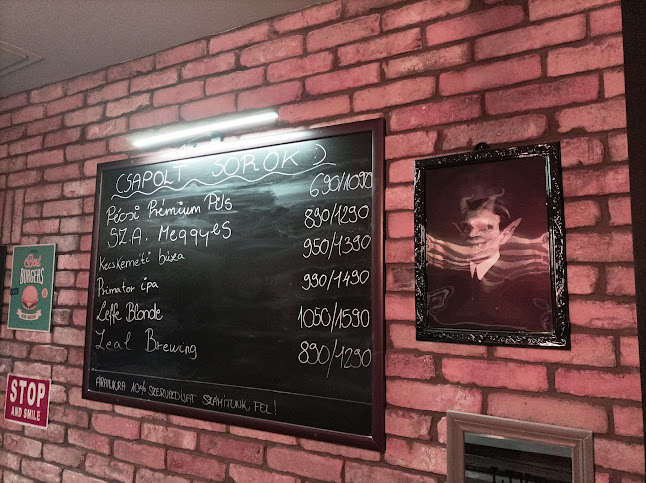 CSAPOLT SÖRÖK :)
Pécsi Prémium Pils 690/1090
SZ.A. Meggyes 890/1290
Kecskeméti búza 950/1390
Primator ipa 990/1490
Leffe Blonde 1050/1590
Zeal Brewing 890/1290
ÁRAINKRA 10% SZERVIZDÍJAT SZÁMÍTUNK FEL!
BURGERS
STOP
AND SMILE